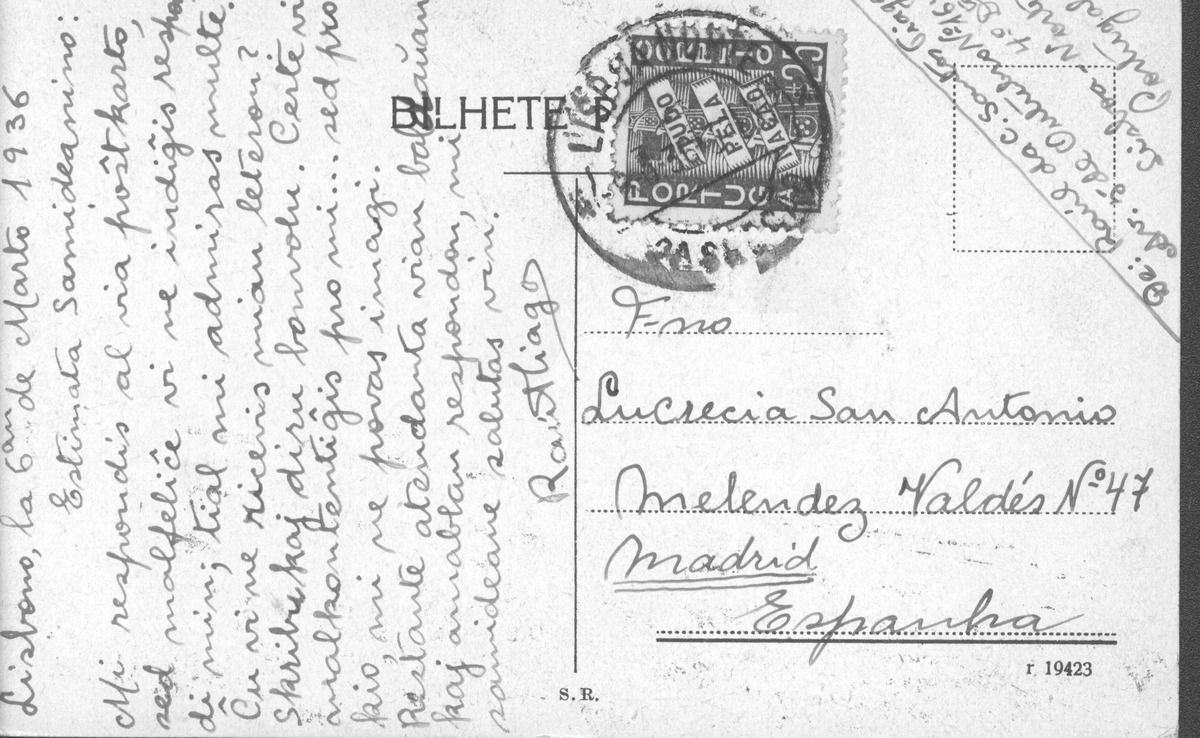 Lisbono, la 6an de Marto 1936
Estimata Samideanino:
Mi respondis al via poŝtkarto,
sed malfeliĉe vi ne indiĝis respo
di min; tial mi admiras multe.
Ĉu vi ne ricevis mian leteron?
Skribu kaj diru bonvolu. Certe vi
malkontentiĝis pro mi... sed pro
kio, mi ne povas imagi.
Restante atendanta vian baldaŭan
kaj amablan respondon, mi
samideane salutas vin.
Raúl Tiago
BILHETE P
PORTUGAL
TUDO
PELA
NAÇÃO
CORREIO
De: Raúl da C. Santos Tiago
Adv. 5 de Outubro Nº 16
4.º
Lisboa - Norte
Portugal
F-no
Lucrecia San Antonio
Melendez Valdés Nº 47
Madrid
Espanha
r 19423
S. R.